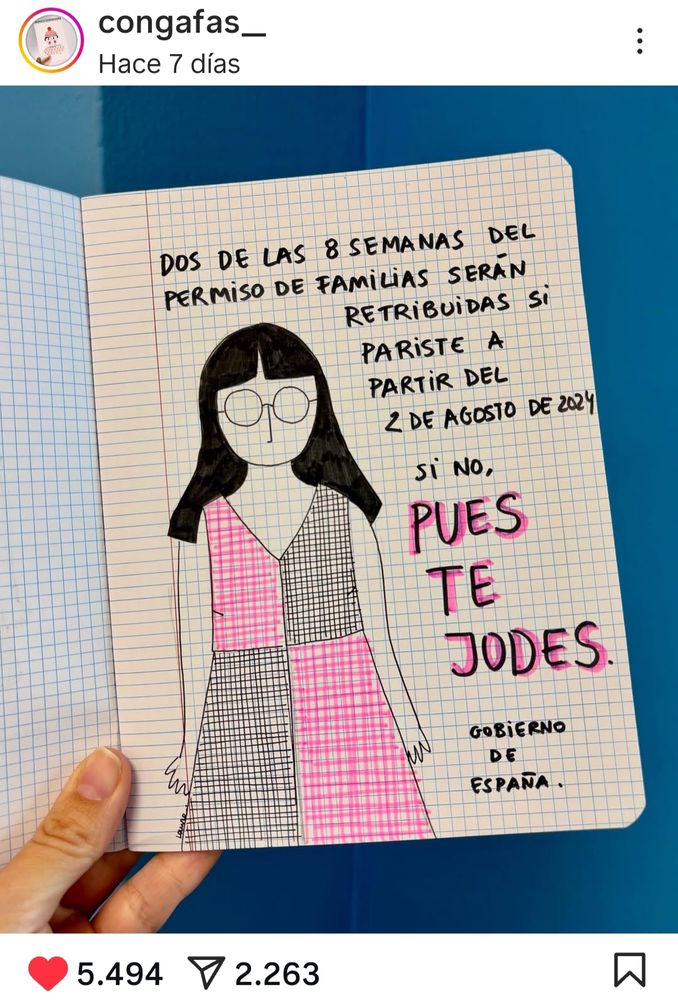 congafas_
Hace 7 días
DOS DE LAS 8 SEMANAS DEL
PERMISO DE FAMILIAS SERÁN
RETRIBUIDAS SI
PARISTE A
PARTIR DEL
2 DE AGOSTO DE 2024
SI NO,
PUES
TE
JODES.
GOBIERNO
DE
ESPAÑA.
5.494
2.263